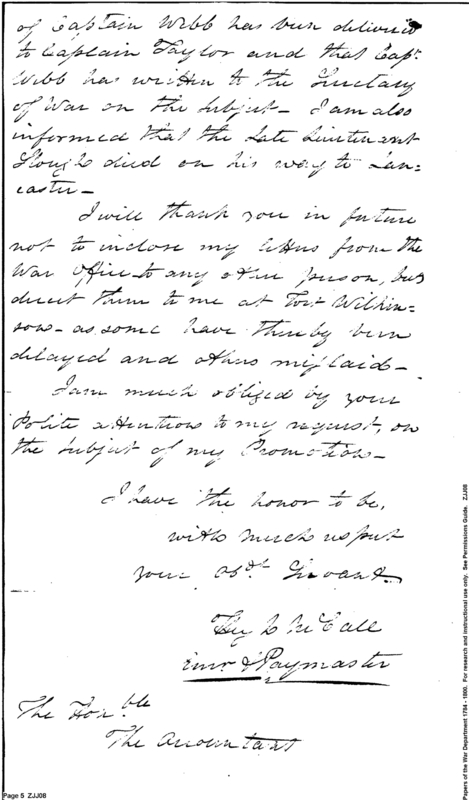 of Captain Webb has been delivered
to Captain Taylor and that Capt.
Webb has written to the Secretary
of War on the subject_ I am also
informed that the Late Lieutenant
Slough died on his way to Lan=
caster_
I will thank you in future
not to inclose my letters from the
War Office to any other person, but
direct them to me at Fort Wilkin=
son_ as some have thereby been
delayed and others mislaid_
I am much obliged by your
Polite attentions to my request, on
the subject of my Promotion_
I have the honor to be,
with much respect
your Obdt. Servant
Hugh McCall
& Paymaster
The Honble
The Accountant
Page 5 ZJJ08
Papers of the War Department 1784 - 1800. For research and instructional use only. See Permissions Guide. ZJJ08